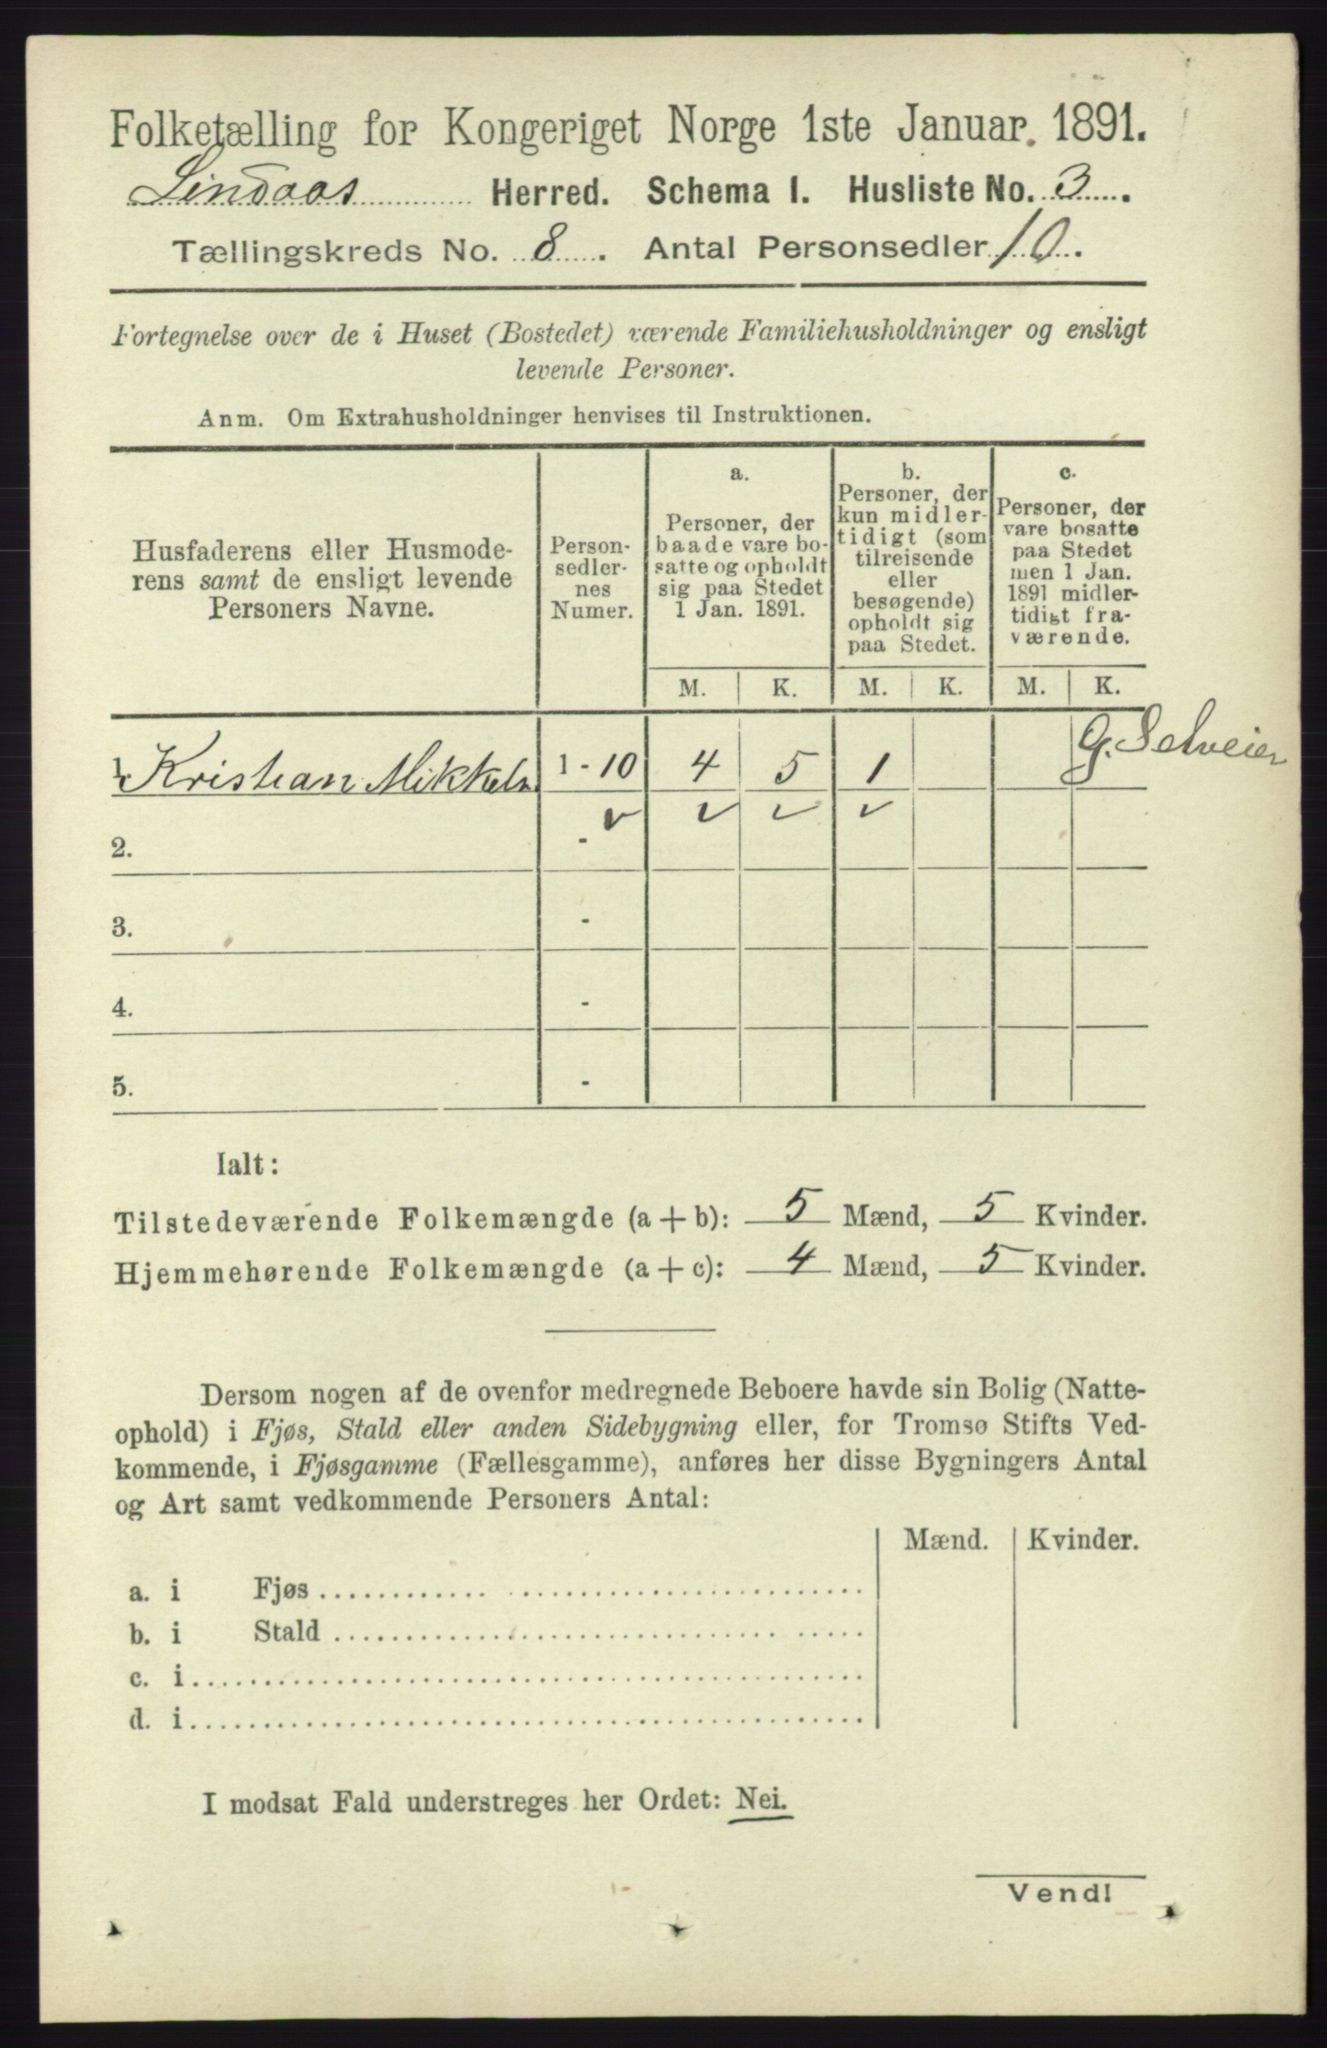 Folketælling for Kongeriget Norge 1ste Januar 1891.
Lindaas Herred. Schema I. Husliste No. 3.
Tællingskreds No. 8. Antal Personsedler 10.
Fortegnelse over de i Huset (Bostedet) værende Familiehusholdninger og ensligt
levende Personer.
Anm. Om Extrahusholdninger henvises til Instruktionen.
Husfaderens eller Husmode-
rens samt de ensligt levende
Personers Navne.
Person-
sedler-
nes
Numer.
a.
Personer, der
baade vare bo-
satte og opholdt
sig paa Stedet
1 Jan. 1891.
b.
Personer, der
kun midler-
tidigt (som
tilreisende
eller
besøgende)
opholdt sig
paa Stedet.
c.
Personer, der
vare bosatte
paa Stedet
men 1 Jan.
1891 midler-
tidigt fra-
værende.
M. K. M. K. M. K.
1. Kristian Mikkels 1 - 10 4 5 1 G. Selveier
✓ ✓ ✓ ✓
2. -
3. -
4. -
5. -
Ialt:
Tilstedeværende Folkemængde (a + b): 5 Mænd, 5 Kvinder.
Hjemmehørende Folkemængde (a + c): 4 Mænd, 5 Kvinder.
Dersom nogen af de ovenfor medregnede Beboere havde sin Bolig (Natte-
ophold) i Fjøs, Stald eller anden Sidebygning eller, for Tromsø Stifts Ved-
kommende, i Fjøsgamme (Fællesgamme), anføres her disse Bygningers Antal
og Art samt vedkommende Personers Antal:
Mænd. Kvinder.
a. i Fjøs
b. i Stald
c. i
d. i
I modsat Fald understreges her Ordet: Nei.
Vend!